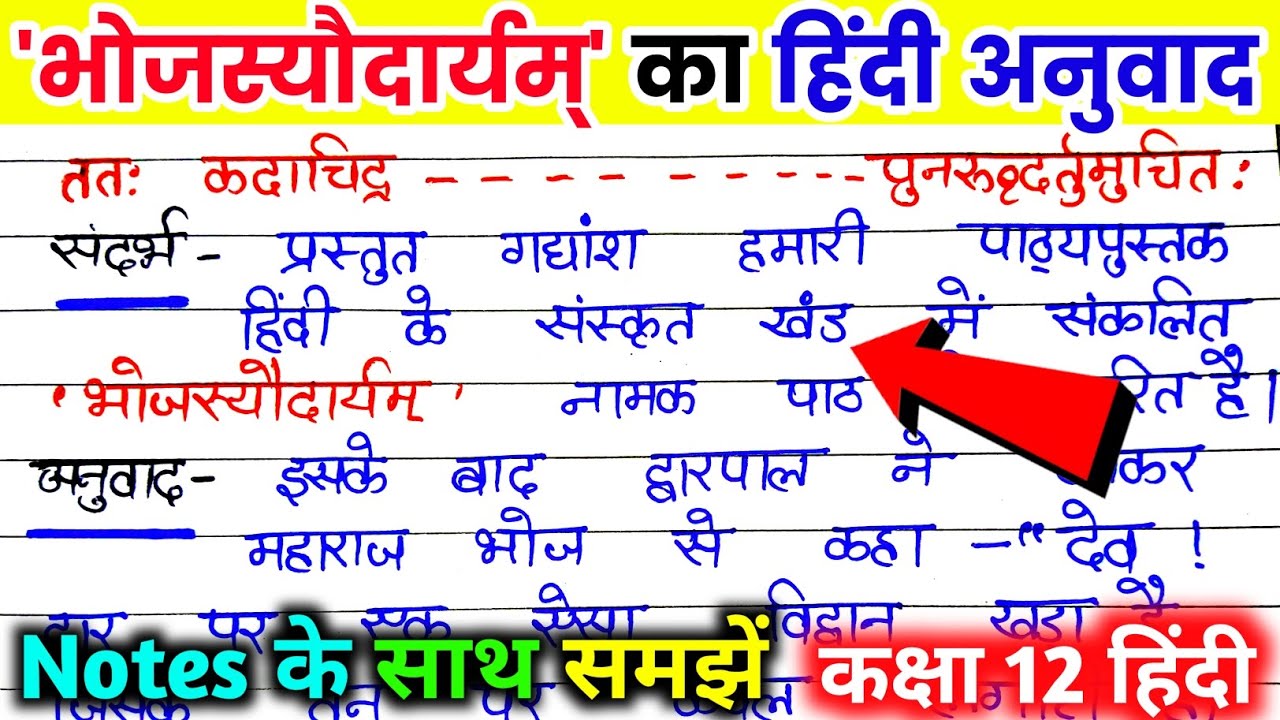 'भोजस्यौदार्यम्' का हिंदी अनुवाद
ततः कदाचिद् - - - - - - - - - - पुनरूद्धर्तुमुचितः
संदर्भ - प्रस्तुत गद्यांश हमारी पाठ्यपुस्तक
हिंदी के संस्कृत खंड में संकलित
'भोजस्यौदार्यम्' नामक पाठ है।
अनुवाद - इसके बाद द्वारपाल ने
महाराज भोज से कहा - "देव !
पर एक ऐसा विद्वान खड़ा है
Notes के साथ समझें कक्षा 12 हिंदी
तन पर